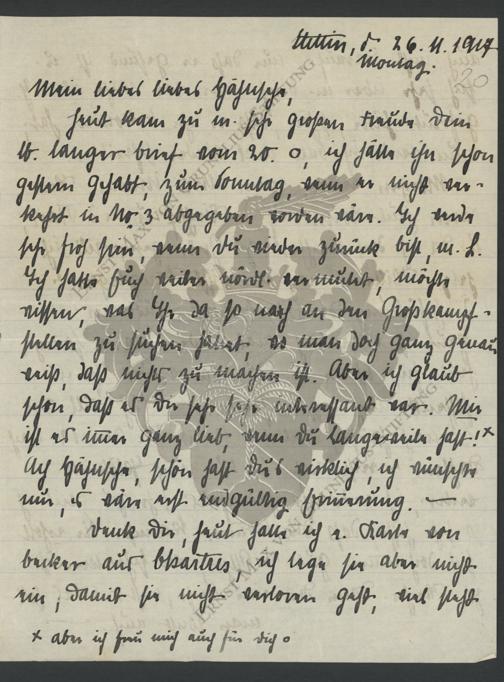 Stettin, d. 26.11.1917
Montag.
20
Mein liebes liebes Hähnsche,
heut kam zu m. sehr großen Freude Dein
lb. langer Brief vom 20. o, ich hätte ihn schon
gestern gehabt, zum Sonntag, wenn er nicht ver-
kehrt in No. 3 abgegeben worden wäre. Ich werde
sehr froh sein, wenn Du wieder zurück bist, m. L.
Ich hatte Euch weiter nördl. vermutet, möchte
wissen, was Ihr da so nach an den Großkampf-
stellen zu suchen habt, wo man doch ganz genau
weiß, daß nichts zu machen ist. Aber ich glaub
schon, daß es Dir sehr sehr interessant war. Mir
ist es immer ganz lieb, wenn Du Langeweile hast! x
Ach Hähnsche, schön hast Du's wirklich, ich wünschte
nur, es wäre erst endgültig Erinnerung. —
Denk Dir, heut hatte ich e. Karte von
Becker aus, ich lege sie aber nicht
ein, damit sie nicht verloren geht, viel steht
x aber ich freu mich auch für Dich o
ERNST MAX VON GRUNELIUS-STIFTUNG